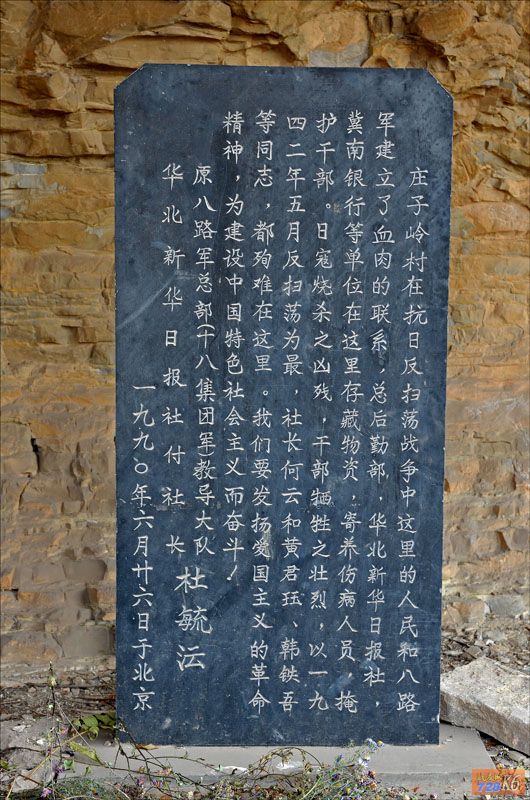 庄子岭村在抗日反扫荡战争中这里的人民和八路
军建立了血肉的联系，总后勤部，华北新华日报社，
冀南银行等单位在这里存藏物资，寄养伤病人员，掩
护干部。日寇烧杀之凶残，干部牺牲之壮烈，以一九
四二年五月反扫荡为最，社长何云和黄君珏、韩铁吾
等同志，都殉难在这里。我们要发扬爱国主义的革命
精神，为建设中国特色社会主义而奋斗！
原八路军总部（十八集团军）教导大队
华北新华日报社付社长
杜毓沄
一九九〇年六月廿六日于北京